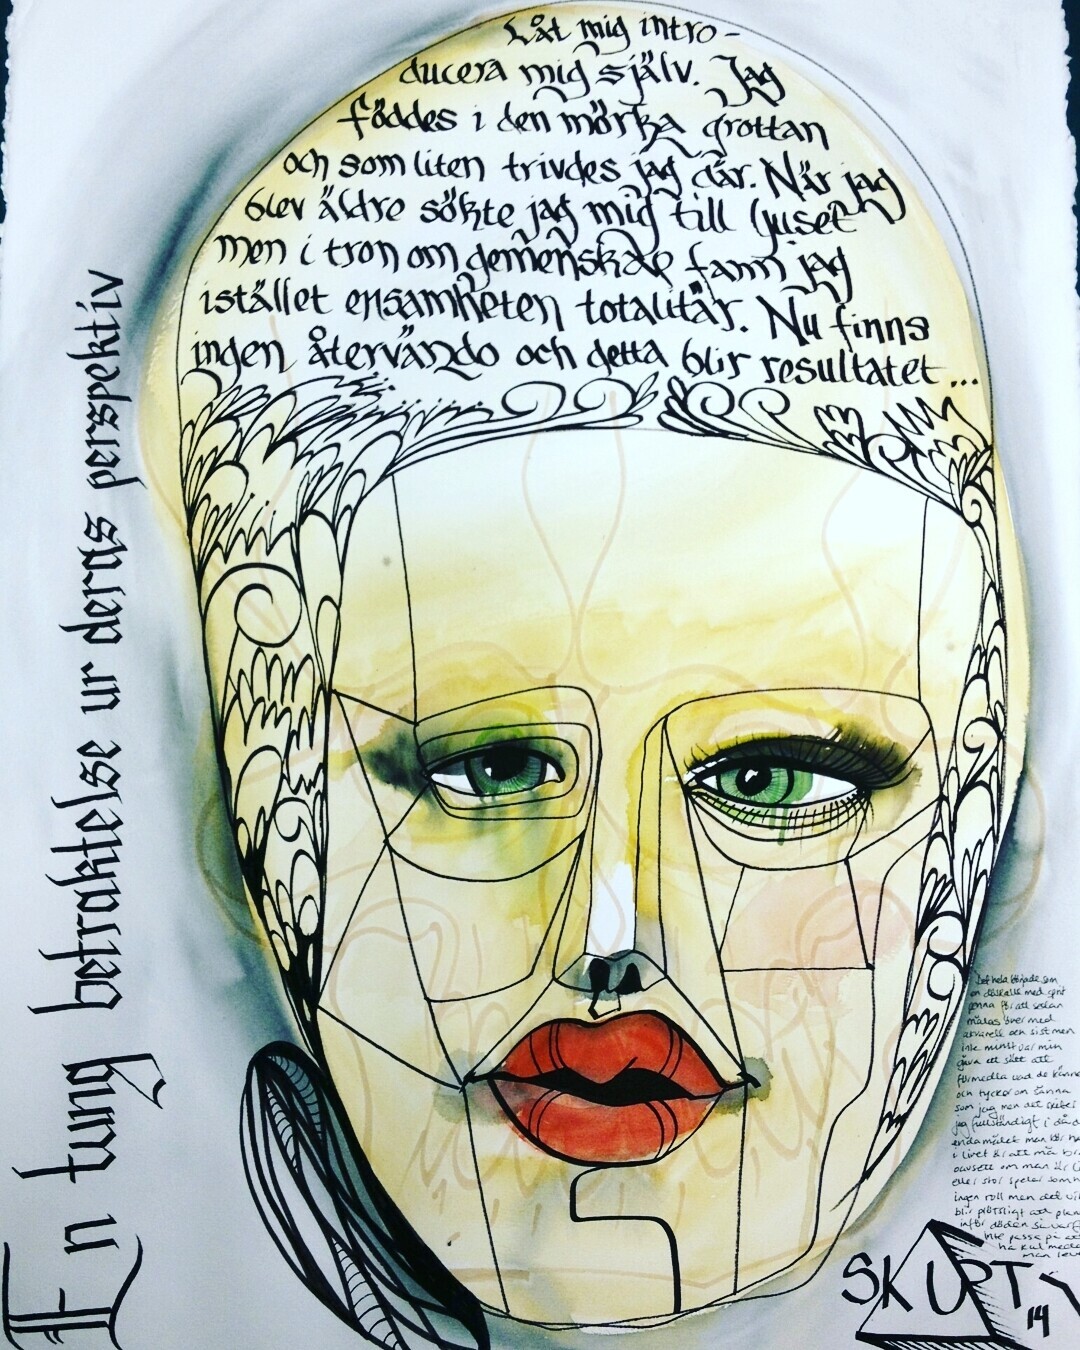 Låt mig intro-
ducera mig själv. Jag
föddes i den mörka grottan
och som liten trivdes jag där. När jag
blev äldre sökte jag mig till ljuset
men i tron om gemenskap fann jag
istället ensamheten totalitär. Nu finns
ingen återvändo och detta blir resultatet...
En tung betraktelse ur deras perspektiv
Det hela började som
en med
penna för att sedan
målas över med
akvarell och sist men
inte minst var min
gåva ett sätt att
förmedla vad de känner
och tycker om sånna
som jag men det skiter
jag fullständigt i då
enda målet man
i livet är att må
oavsett om man är
eller stor spelar
ingen roll men det
blir plötsligt
inför döden så
inte passa på att
ha kul medan
man
SKURT
14